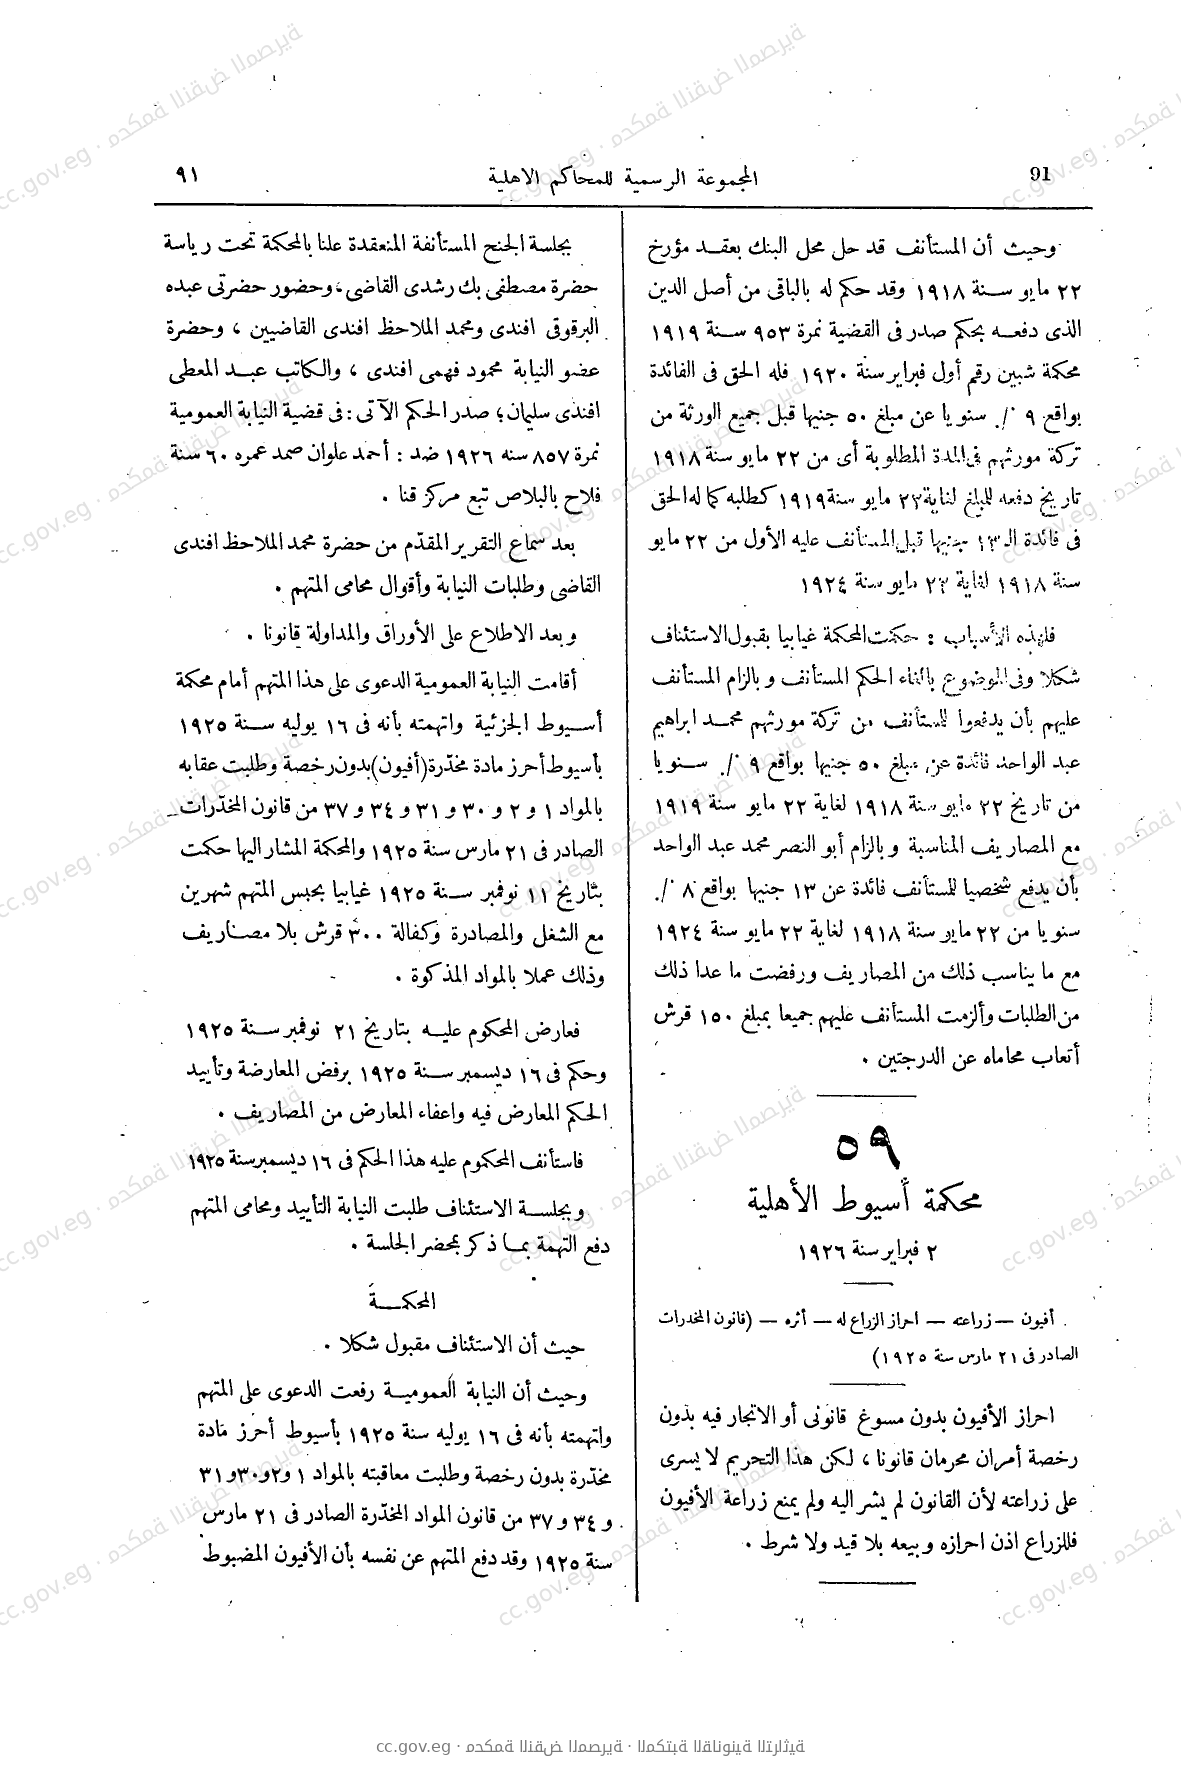 91
المجموعة الرسمية للمحاكم الاهلية
٩١
وحيث أن المستأنف قد حل محل البنك بعقد مؤرخ
٢٢ مايو سنة ١٩١٨ وقد حكم له بالباقى من أصل الدين
الذى دفعه بحكم صدر فى القضية نمرة ٩٥٣ سنة ١٩١٩
محكمة شبين رقم أول فبراير سنة ١٩٢٠ فله الحق فى الفائدة
بواقع ٩ ٪ سنويا عن مبلغ ٥٠ جنيها قبل جميع الورثة من
تركة مورثهم فى المدة المطلوبة أى من ٢٢ مايو سنة ١٩١٨
تاريخ دفعه للمبلغ لغاية ٢٢ مايو سنة ١٩١٩ كطلبه كما له الحق
فى فائدة الـ ١٣ جنيها قبل المستأنف عليه الأول من ٢٢ مايو
سنة ١٩١٨ لغاية ٢٢ مايو سنة ١٩٢٤
فلهذه الأسباب : حكمت المحكمة غيابيا بقبول الاستئناف
شكلا وفى الموضوع بالغاء الحكم المستأنف وبالزام المستأنف
عليهم بأن يدفعوا للمستأنف من تركة مورثهم محمد ابراهيم
عبد الواحد فائدة عن مبلغ ٥٠ جنيها بواقع ٩ ٪ سنويا
من تاريخ ٢٢ مايو سنة ١٩١٨ لغاية ٢٢ مايو سنة ١٩١٩
مع المصاريف المناسبة وبالزام أبو النصر محمد عبد الواحد
بأن يدفع شخصيا للمستأنف فائدة عن ١٣ جنيها بواقع ٨ ٪
سنويا من ٢٢ مايو سنة ١٩١٨ لغاية ٢٢ مايو سنة ١٩٢٤
مع ما يناسب ذلك من المصاريف ورفضت ما عدا ذلك
من الطلبات وألزمت المستأنف عليهم جميعا بمبلغ ١٥٠ قرش
أتعاب محاماه عن الدرجتين .
٥٩
محكمة أسيوط الأهلية
٢ فبراير سنة ١٩٢٦
أفيون — زراعته — احراز الزراع له — أثره — (قانون المخدرات
الصادر فى ٢١ مارس سنة ١٩٢٥)
احراز الأفيون بدون مسوغ قانونى أو الاتجار فيه بدون
رخصة أمران محرمان قانونا ، لكن هذا التحريم لا يسرى
على زراعته لأن القانون لم يشر اليه ولم يمنع زراعة الأفيون
فللزراع اذن احرازه وبيعه بلا قيد ولا شرط .
بجلسة الجنح المستأنفة المنعقدة علنا بالمحكمة تحت رياسة
حضرة مصطفى بك رشدى القاضى ، وحضور حضرتى عبده
البرقوقى افندى ومحمد الملاحظ افندى القاضيين ، وحضرة
عضو النيابة محمود فهمى افندى ، والكاتب عبد المعطى
افندى سليمان ؛ صدر الحكم الآتى : فى قضية النيابة العمومية
نمرة ٨٥٧ سنه ١٩٢٦ ضد : أحمد علوان صمد عمره ٦٠ سنة
فلاح بالبلاص تبع مركز قنا .
بعد سماع التقرير المقدّم من حضرة محمد الملاحظ افندى
القاضى وطلبات النيابة وأقوال محامى المتهم .
وبعد الاطلاع على الأوراق والمداولة قانونا .
أقامت النيابة العمومية الدعوى على هذا المتهم أمام محكمة
أسيوط الجزئية واتهمته بأنه فى ١٦ يوليه سنة ١٩٢٥
بأسيوط أحرز مادة مخدّرة (أفيون) بدون رخصة وطلبت عقابه
بالمواد ١ و ٢ و ٣٠ و ٣١ و ٣٤ و ٣٧ من قانون المخدّرات
الصادر فى ٢١ مارس سنة ١٩٢٥ والمحكمة المشار اليها حكمت
بتاريخ ١١ نوفمبر سنة ١٩٢٥ غيابيا بحبس المتهم شهرين
مع الشغل والمصادرة وكفالة ٣٠٠ قرش بلا مصاريف
وذلك عملا بالمواد المذكوة .
فعارض المحكوم عليه بتاريخ ٢١ نوفمبر سنة ١٩٢٥
وحكم فى ١٦ ديسمبر سنة ١٩٢٥ برفض المعارضة وتأييد
الحكم المعارض فيه واعفاء المعارض من المصاريف .
فاستأنف المحكموم عليه هذا الحكم فى ١٦ ديسمبر سنة ١٩٢٥
وبجلسة الاستئناف طلبت النيابة التأييد ومحامى المتهم
دفع التهمة بما ذكر بمحضر الجلسة .
المحكمة
حيث أن الاستئناف مقبول شكلا .
وحيث أن النيابة العمومية رفعت الدعوى على المتهم
واتهمته بأنه فى ١٦ يوليه سنة ١٩٢٥ بأسيوط أحرز مادة
مخدّرة بدون رخصة وطلبت معاقبته بالمواد ١ و٢ و٣٠ و٣١
و ٣٤ و ٣٧ من قانون المواد المخدّرة الصادر فى ٢١ مارس
سنة ١٩٢٥ وقد دفع المتهم عن نفسه بأن الأفيون المضبوط
cc.gov.eg · محكمة النقض المصرية · المكتبة القانونية التراثية